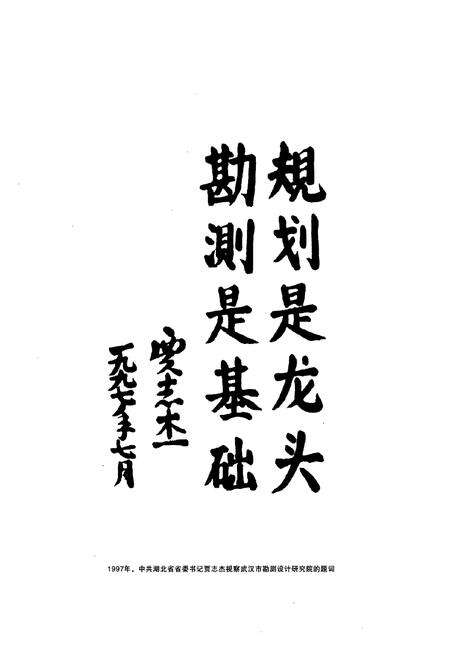 規划是龙头
勘测是基础
贾志杰
一九九七年七月
1997年，中共湖北省省委书记贾志杰视察武汉市勘测设计研究院的题词